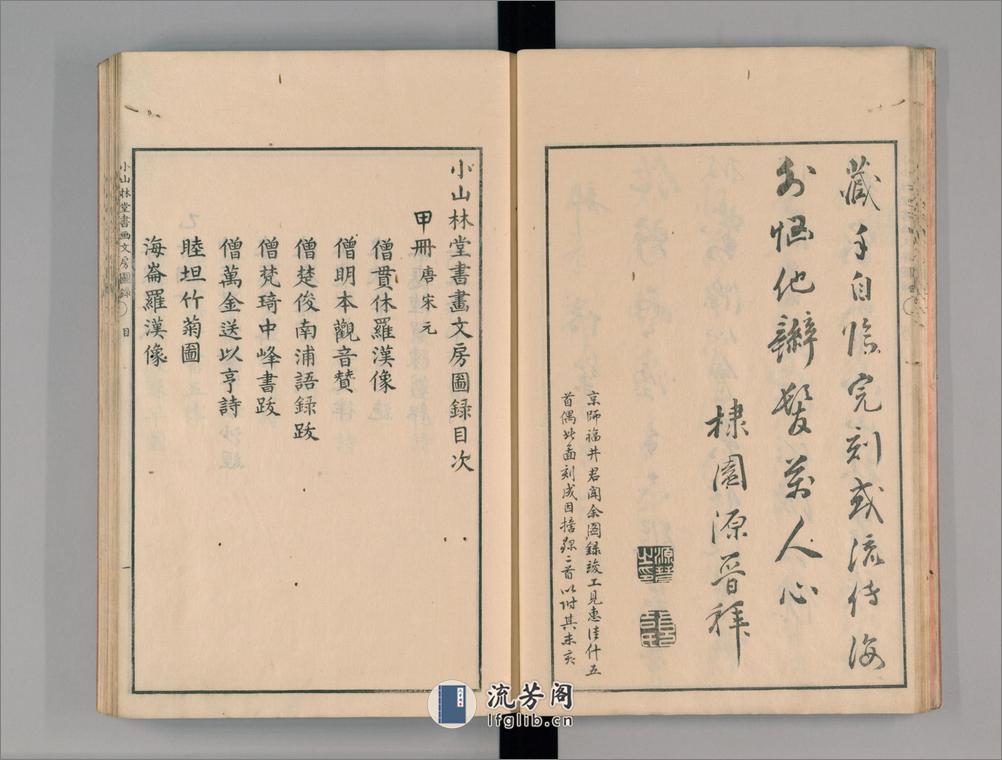 藏手自臨完刻或流傳海
外恼他辮髮萬人心
棣園源晉拜
京師福井君聞余圖錄竣工見惠佳什五
首偶此圖刻成因擔錄二首以附其末亥
小山林堂書畫文房圖録目次
甲冊唐宋元
僧貫休羅漢像
僧明本觀音贊
僧楚俊南浦語録跋
僧梵琦中峰書跋
僧萬金送以亨詩
睦坦竹菊圖
海崙羅漢像
小山林堂書画文房圖錄
目
一
流芳阁
lfglib.cn